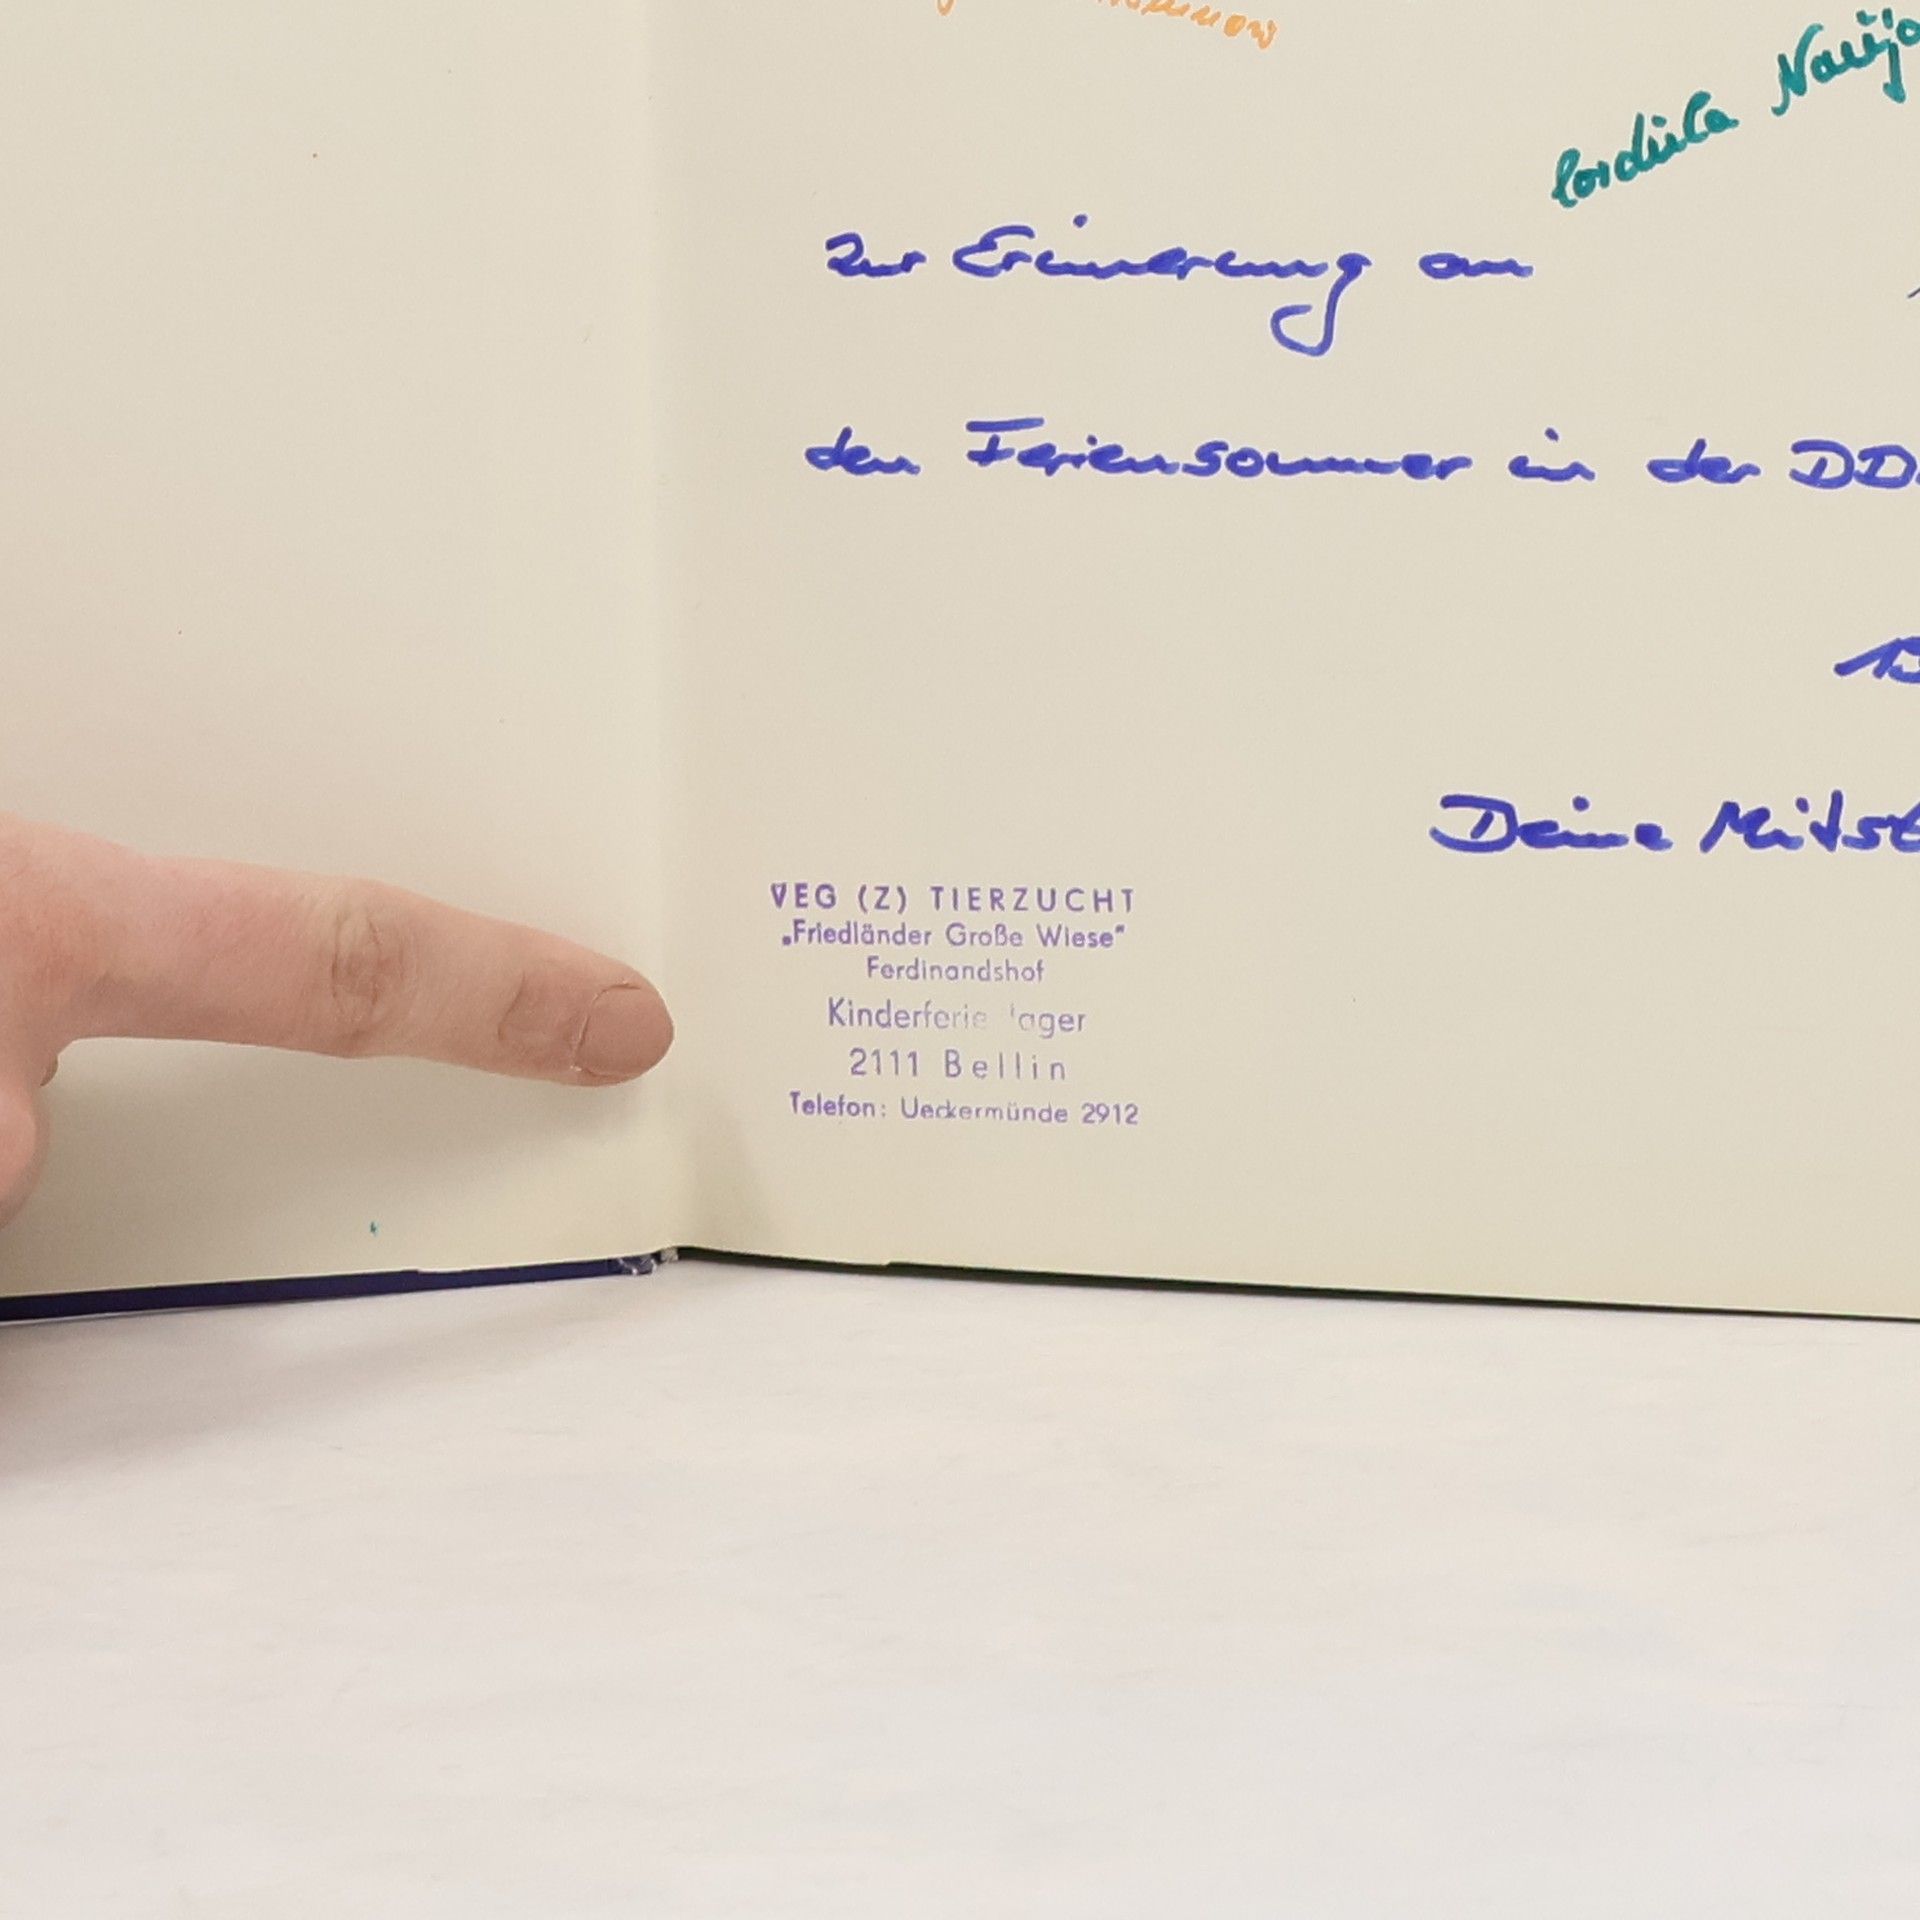 Cordula
Zur Erinnerung an
den Feriensommer in der DD
Deine Mitst
VEG (Z) TIERZUCHT
„Friedländer Große Wiese"
Ferdinandshof
Kinderferie lager
2111 Bellin
Telefon: Ueckermünde 2912